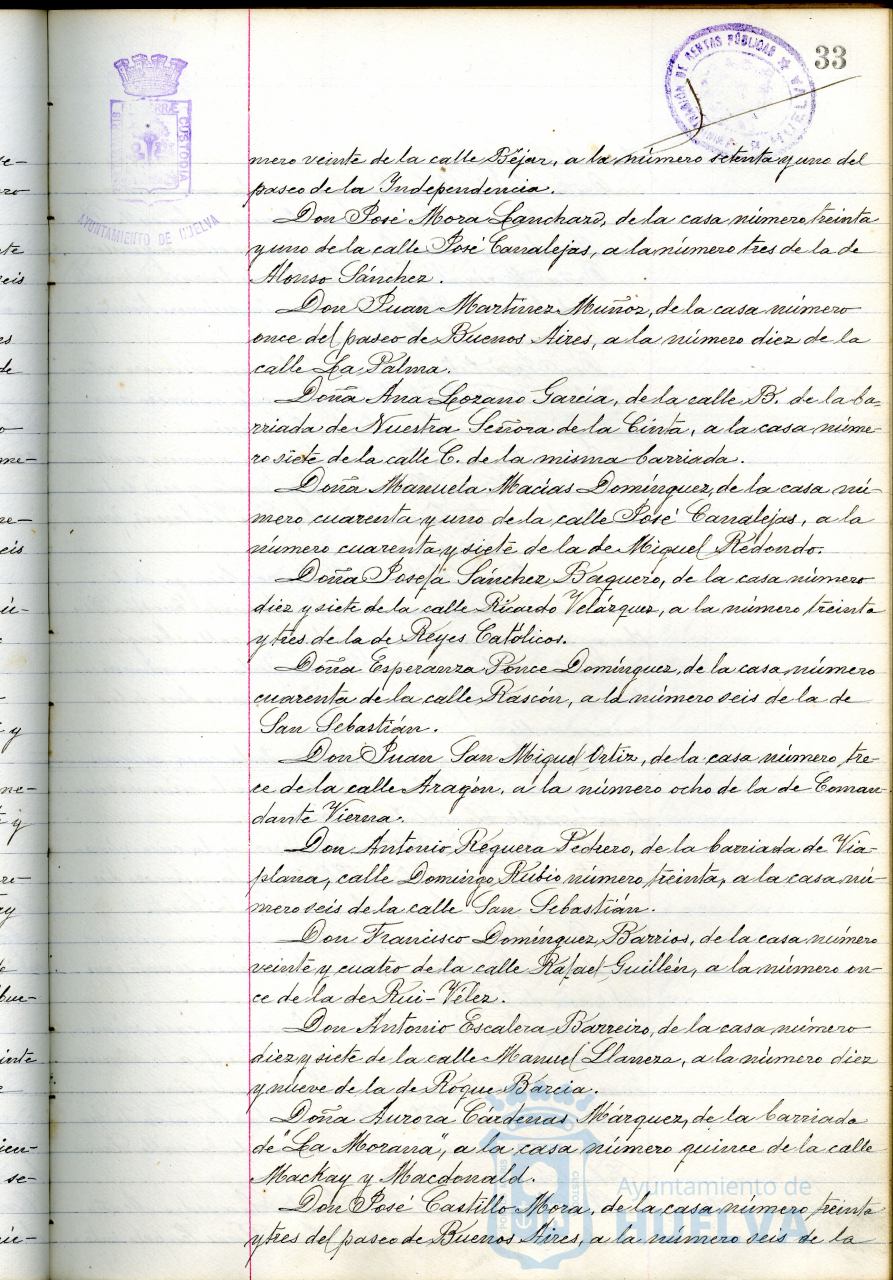 33
AYUNTAMIENTO DE HUELVA
mero veinte de la calle Béjar, a la número setenta y uno del
paseo de la Independencia.
Don José Mora Lanchazo, de la casa número treinta
y uno de la calle José Canalejas, a la número tres de la de
Alonso Sánchez.
Don Juan Martínez Muñoz, de la casa número
once del paseo de Buenos Aires, a la número diez de la
calle La Palma.
Doña Ana Lozano García, de la calle B. de la ba-
rriada de Nuestra Señora de la Cinta, a la casa núme-
ro siete de la calle C. de la misma barriada.
Doña Manuela Macías Domínguez, de la casa nú-
mero cuarenta y uno de la calle José Canalejas, a la
número cuarenta y siete de la de Miguel Redondo.
Doña Josefa Sánchez Baquero, de la casa número
diez y siete de la calle Ricardo Velázquez, a la número treinta
y tres de la de Reyes Católicos.
Doña Esperanza Ponce Domínguez, de la casa número
cuarenta de la calle Rascón, a la número seis de la de
San Sebastián.
Don Juan San Miguel Ortiz, de la casa número tre-
ce de la calle Aragón, a la número ocho de la de Coman-
dante Vierna.
Don Antonio Reguera Pedrero, de la barriada de Via-
plana, calle Domingo Rubio número treinta, a la casa nú-
mero seis de la calle San Sebastián.
Don Francisco Domínguez Barrios, de la casa número
veinte y cuatro de la calle Rafael Guillén, a la número on-
ce de la de Rui-Vélez.
Don Antonio Escalera Barreiro, de la casa número
diez y siete de la calle Manuel Llaneza, a la número diez
y nueve de la de Roque Barcia.
Doña Aurora Cárdenas Márquez, de la barriada
de "La Morana", a la casa número quince de la calle
Mackay y Macdonald.
Don José Castillo Mora, de la casa número treinta
y tres del paseo de Buenos Aires, a la número seis de la
Ayuntamiento de
HUELVA